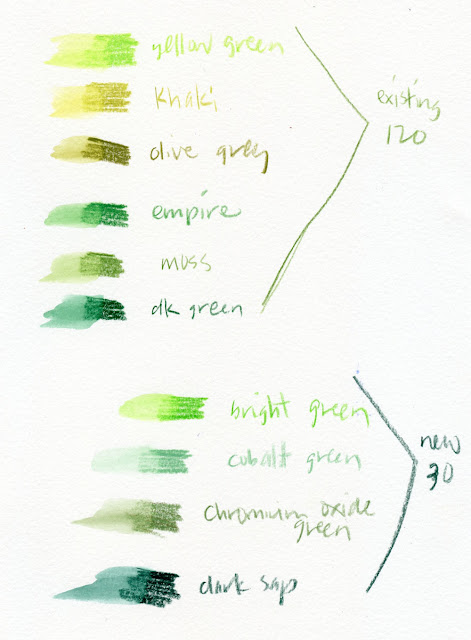 yellow green
khaki
existing
120
olive grey
empire
moss
dk green
bright green
new
30
cobalt green
chromium oxide
green
dark sap